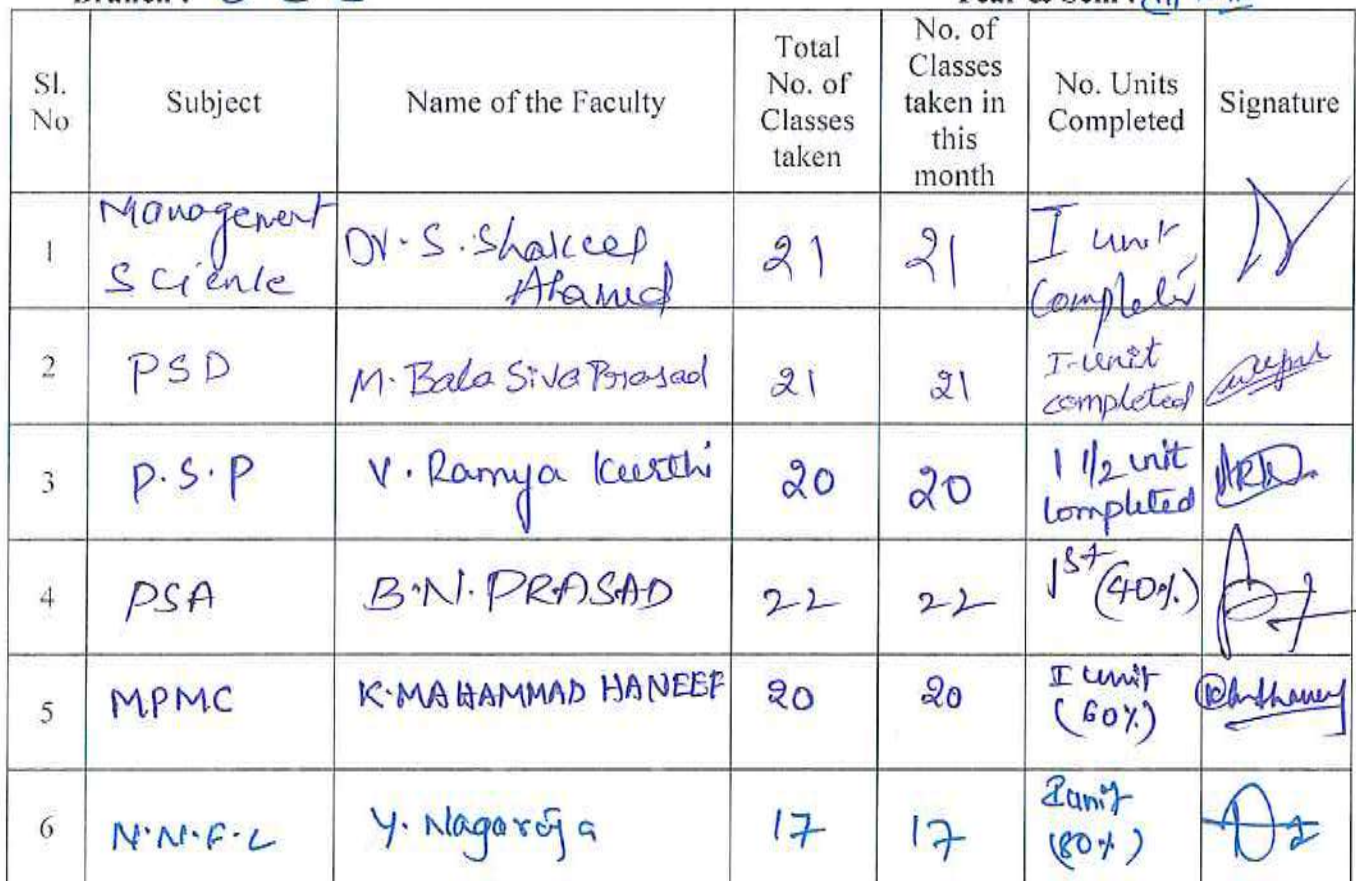 Sl. No
Subject
Name of the Faculty
Total No. of Classes taken
No. of Classes taken in this month
No. Units Completed
Signature
1
Management Science
Dr. S. Shakeel Ahamed
21
21
I unit
2
PSD
M. Bala Siva Prasad
21
21
I-unit completed
3
P.S.P
V. Ramya Keerthi
20
20
1 1/2 unit completed
4
PSA
B.N. PRASAD
22
22
1st (40%)
5
MPMC
K. MAHAMMAD HANEEF
20
20
I unit (60%)
6
N.N.F.L
Y. Nagaraja
17
17
(80%)